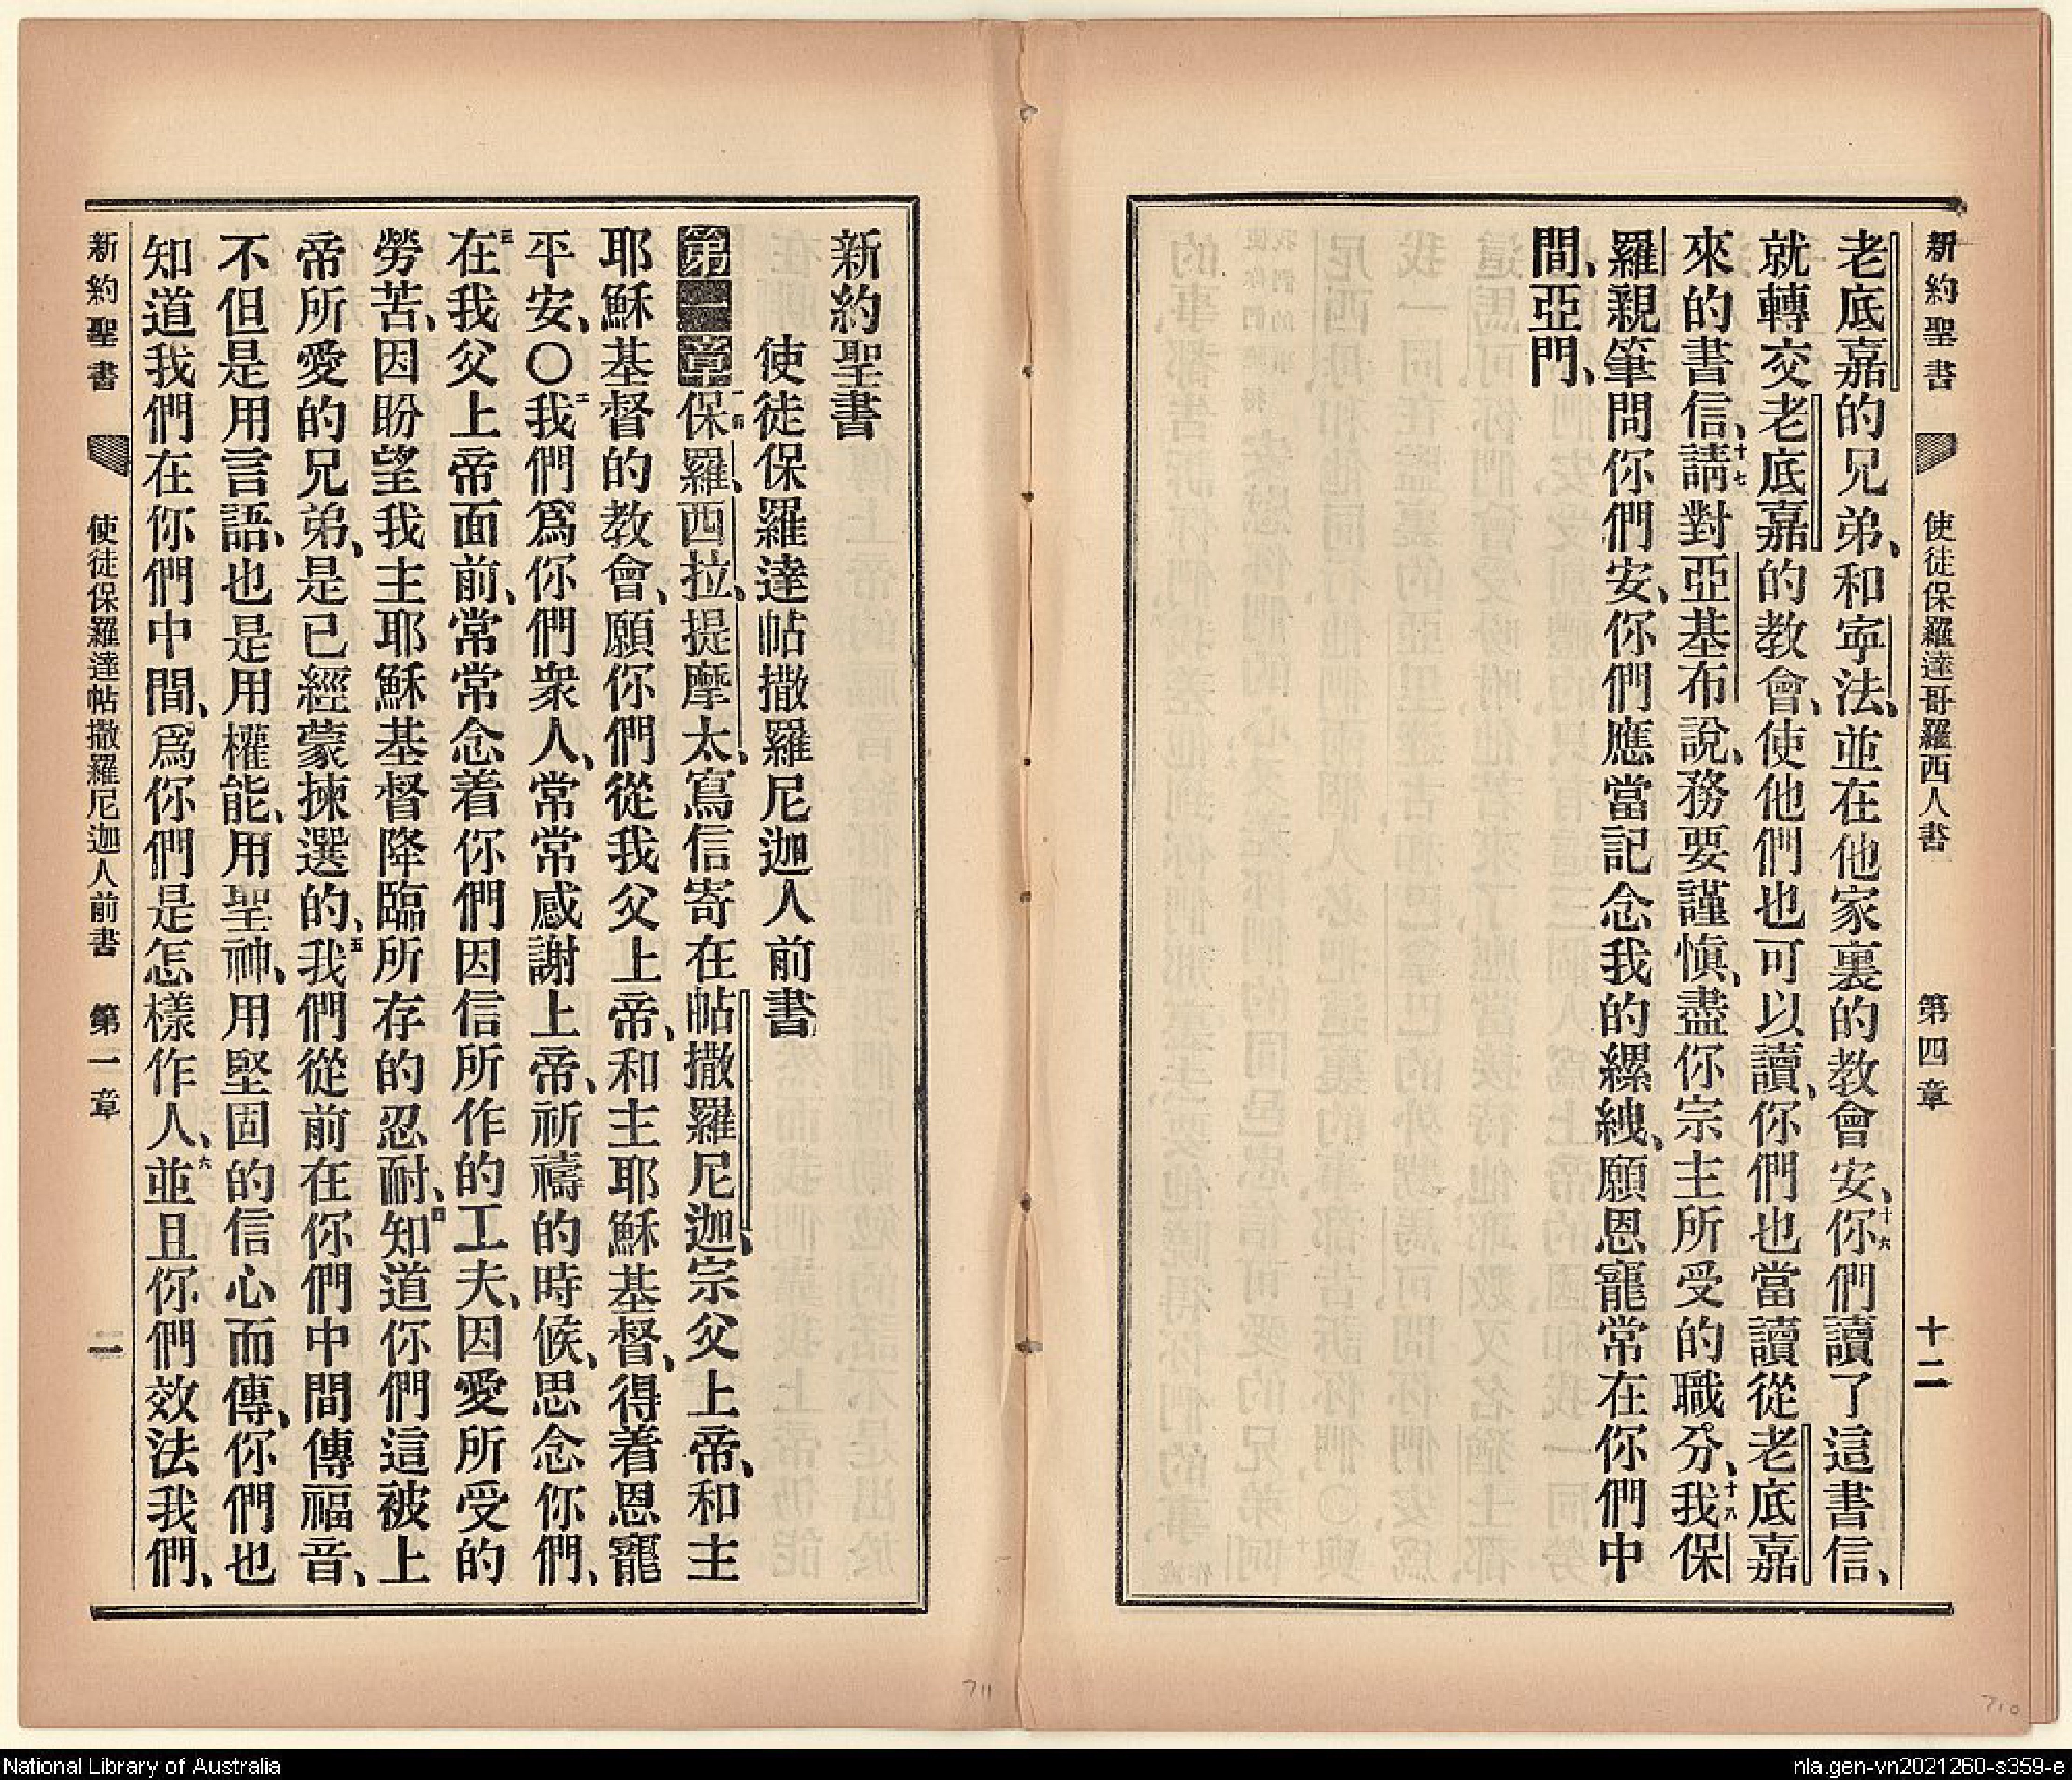 新約聖書 使徒保羅達哥羅西人書 第四章 十二
老底嘉的兄弟、和寍法、並在他家裏的教會安、十六你們讀了這書信、
就轉交老底嘉的教會、使他們也可以讀、你們也當讀從老底嘉
來的書信、十七請對亞基布說、務要謹愼、盡你宗主所受的職分、十八我保
羅親筆問你們安、你們應當記念我的縲絏、願恩寵常在你們中
間、亞門、
新約聖書
使徒保羅達帖撒羅尼迦人前書
第一章 一節保羅、西拉、提摩太、寫信寄在帖撒羅尼迦、宗父上帝、和主
耶穌基督的教會、願你們從我父上帝、和主耶穌基督、得着恩寵
平安、〇二我們爲你們衆人、常常感謝上帝、祈禱的時候、思念你們、
三在我父上帝面前、常常念着你們因信所作的工夫、因愛所受的
勞苦、因盼望我主耶穌基督降臨所存的忍耐、四知道你們這被上
帝所愛的兄弟、是已經蒙揀選的、五我們從前在你們中間傳福音、
不但是用言語、也是用權能、用聖神、用堅固的信心而傳、你們也
知道我們在你們中間、爲你們是怎樣作人、六並且你們效法我們、
新約聖書 使徒保羅達帖撒羅尼迦人前書 第一章 一
711
710
National Library of Australia
nla.gen-vn2021260-s359-e